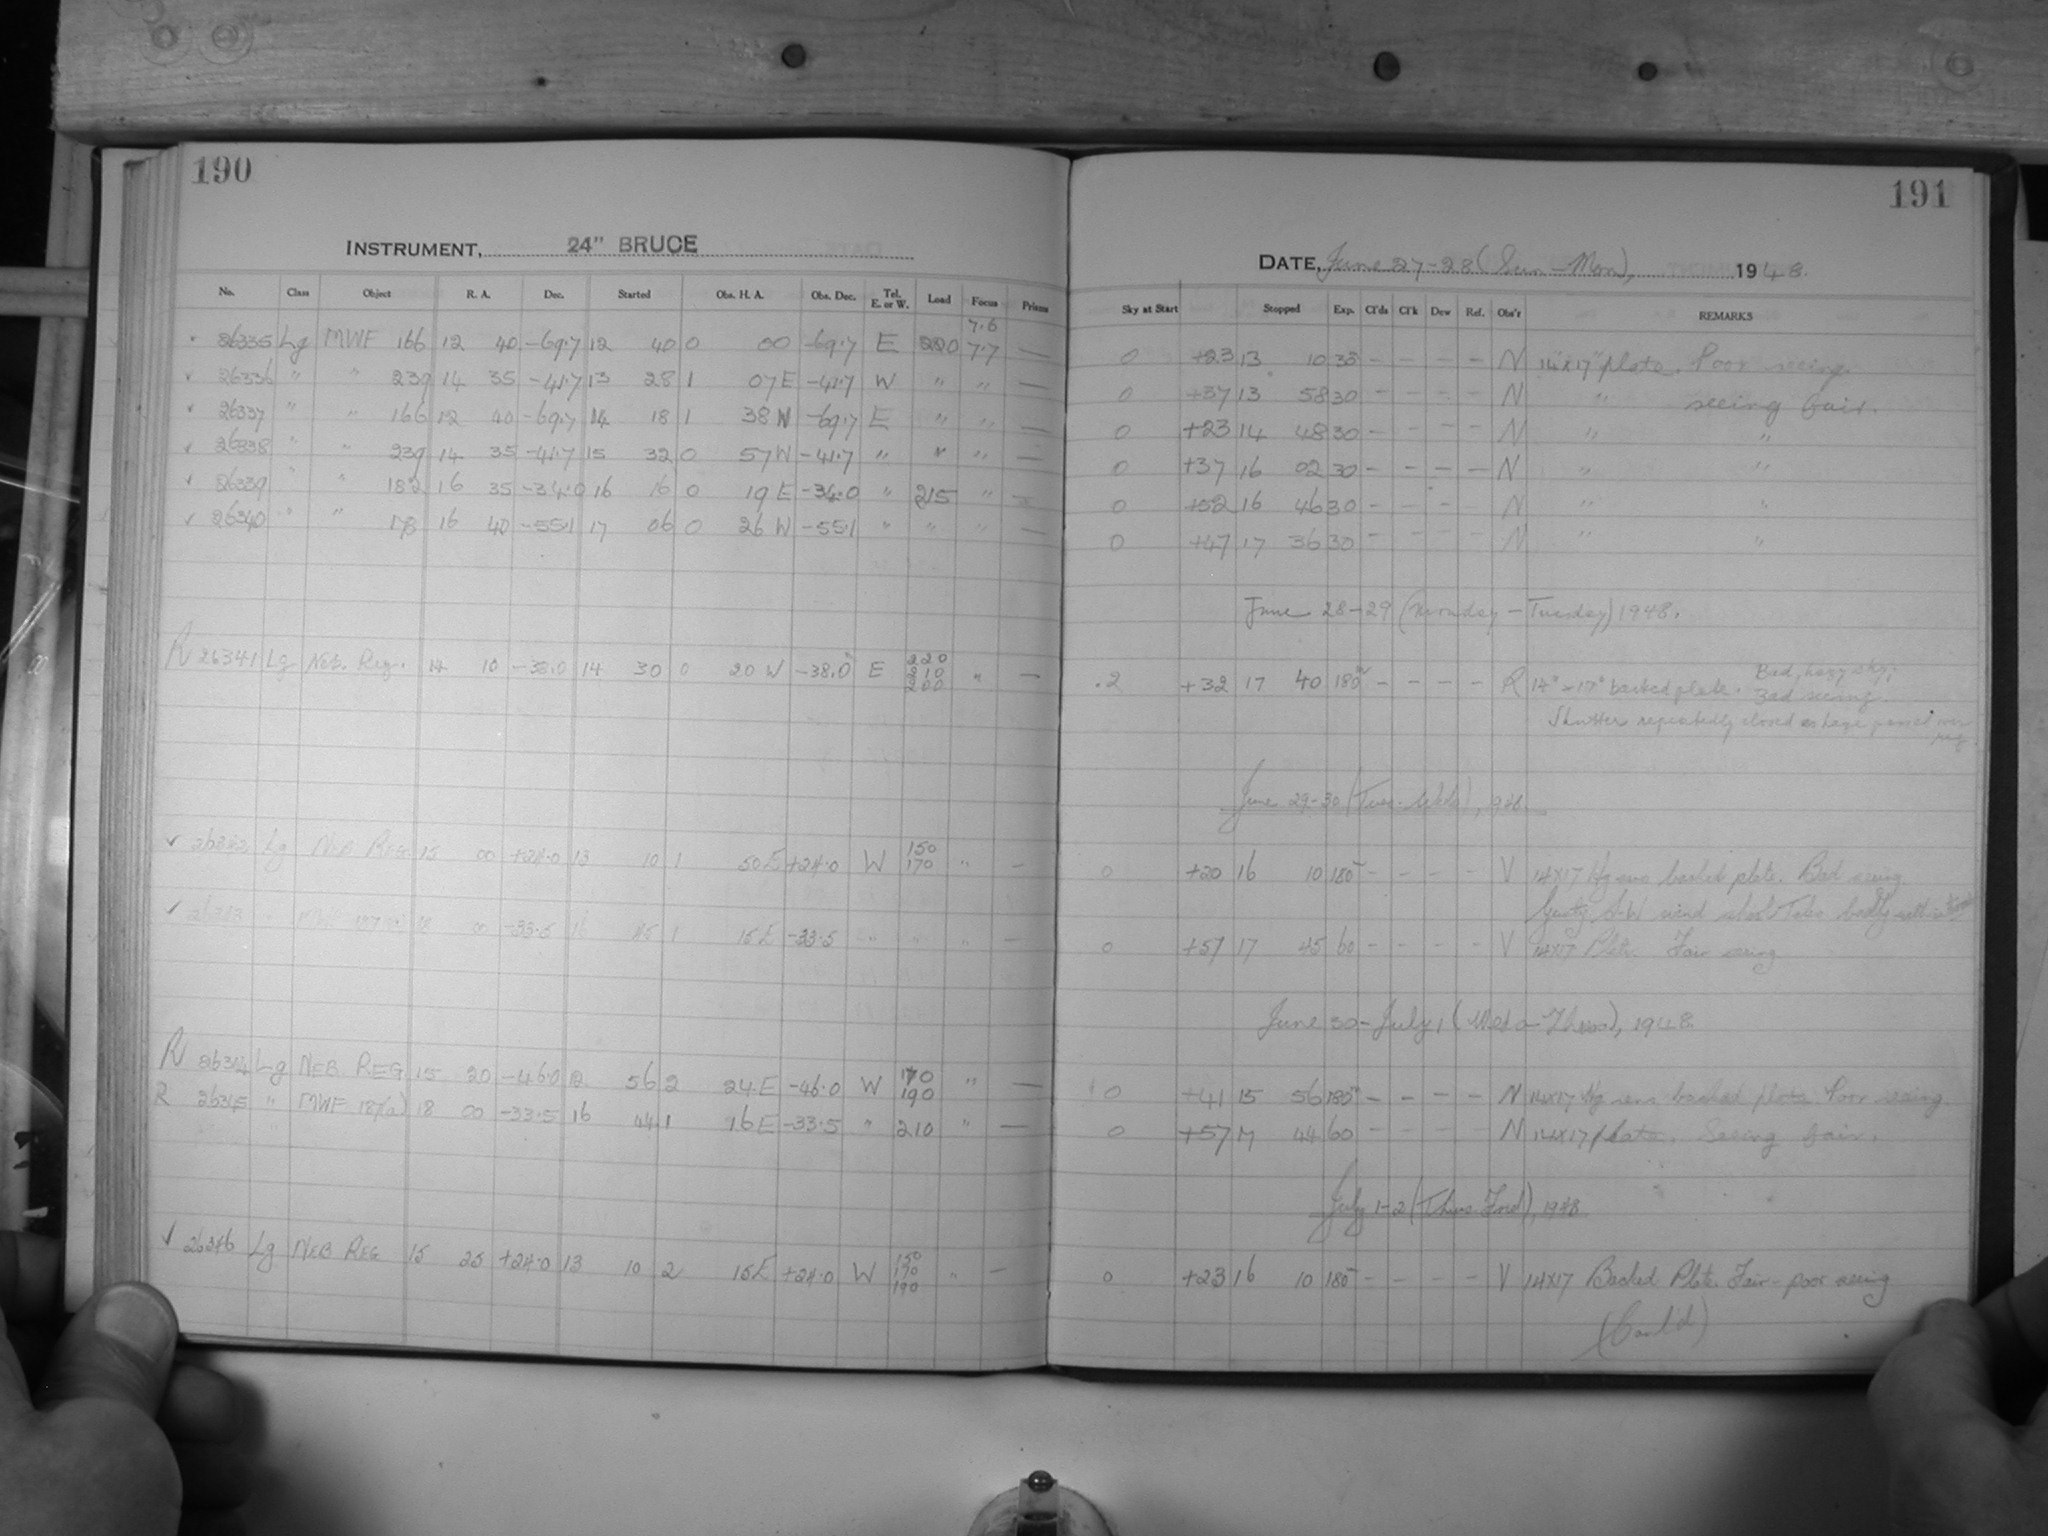 190
INSTRUMENT, 24" BRUCE
No. Class Object R. A. Dec. Started Obs. H. A. Obs. Dec. Tel. E. or W. Load Focus Prisms
7.6
26335 Lg MWF 166 12 40 -69.7 12 40 0 00 -69.7 E 220 7.7 —
26336 " " 239 14 35 -41.7 13 28 1 07 E -41.7 W " " —
26337 " " 166 12 40 -69.7 14 18 1 38 W -69.7 E " " —
26338 " " 239 14 35 -41.7 15 32 0 57 W -41.7 " " " —
26339 " " 182 16 35 -34.0 16 16 0 19 E -34.0 " 215 " —
26340 " " 178 16 40 -55.1 17 06 0 26 W -55.1 " " " —
R 26341 Lg Neb. Reg. 14 10 -38.0 14 30 0 20 W -38.0 E 220 210 200 " —
✓ 26342 Lg NEB REG 15 00 +24.0 13 10 1 50 E +24.0 W 150 170 " —
✓ 26343 " MWF 187(a) 18 00 -33.5 16 45 1 15 E -33.5 " " " —
R 26344 Lg NEB REG 15 20 -46.0 12 56 2 24 E -46.0 W 170 190 " —
R 26345 " MWF 187(a) 18 00 -33.5 16 44 1 16 E -33.5 " 210 " —
✓ 26346 Lg NEB REG 15 25 +24.0 13 10 2 15 E +24.0 W 150 170 190 " —
191
DATE, June 27-28 (Sun-Mon), 1948.
Sky at Start Stopped Exp. Cl'ds Cl'k Dew Ref. Obs'r REMARKS
0 +23 13 10 30 - - - - N 14"x17" plate. Poor seeing.
0 +37 13 58 30 - - - - N " seeing fair.
0 +23 14 48 30 - - - - N " "
0 +37 16 02 30 - - - - N " "
0 +52 16 46 30 - - - - N " "
0 +47 17 36 30 - - - - N " "
June 28-29 (Monday-Tuesday) 1948.
.2 +32 17 40 180 - - - - R 14" x 17" backed plate. Bad, hazy sky; Bad seeing
Shutter repeatedly closed as haze passed over
June 29-30 (Tues-Weds), 1948.
0 +20 16 10 180 - - - - V 14x17 backed plate. Bad seeing.
Gusty S-W wind
0 +57 17 45 60 - - - - V 14x17 Plate. Fair seeing
June 30-July 1 (Wed-Thurs), 1948.
0 +41 15 56 180 - - - - N 14x17 backed plate. Poor seeing.
0 +57 17 44 60 - - - - N 14x17 plate. Seeing fair.
July 1-2 (Thurs-Frid), 1948
0 +23 16 10 180 - - - - V 14x17 Backed Plate. Fair-poor seeing
(Cont'd)